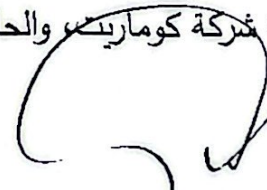 شركة كوماريت والح